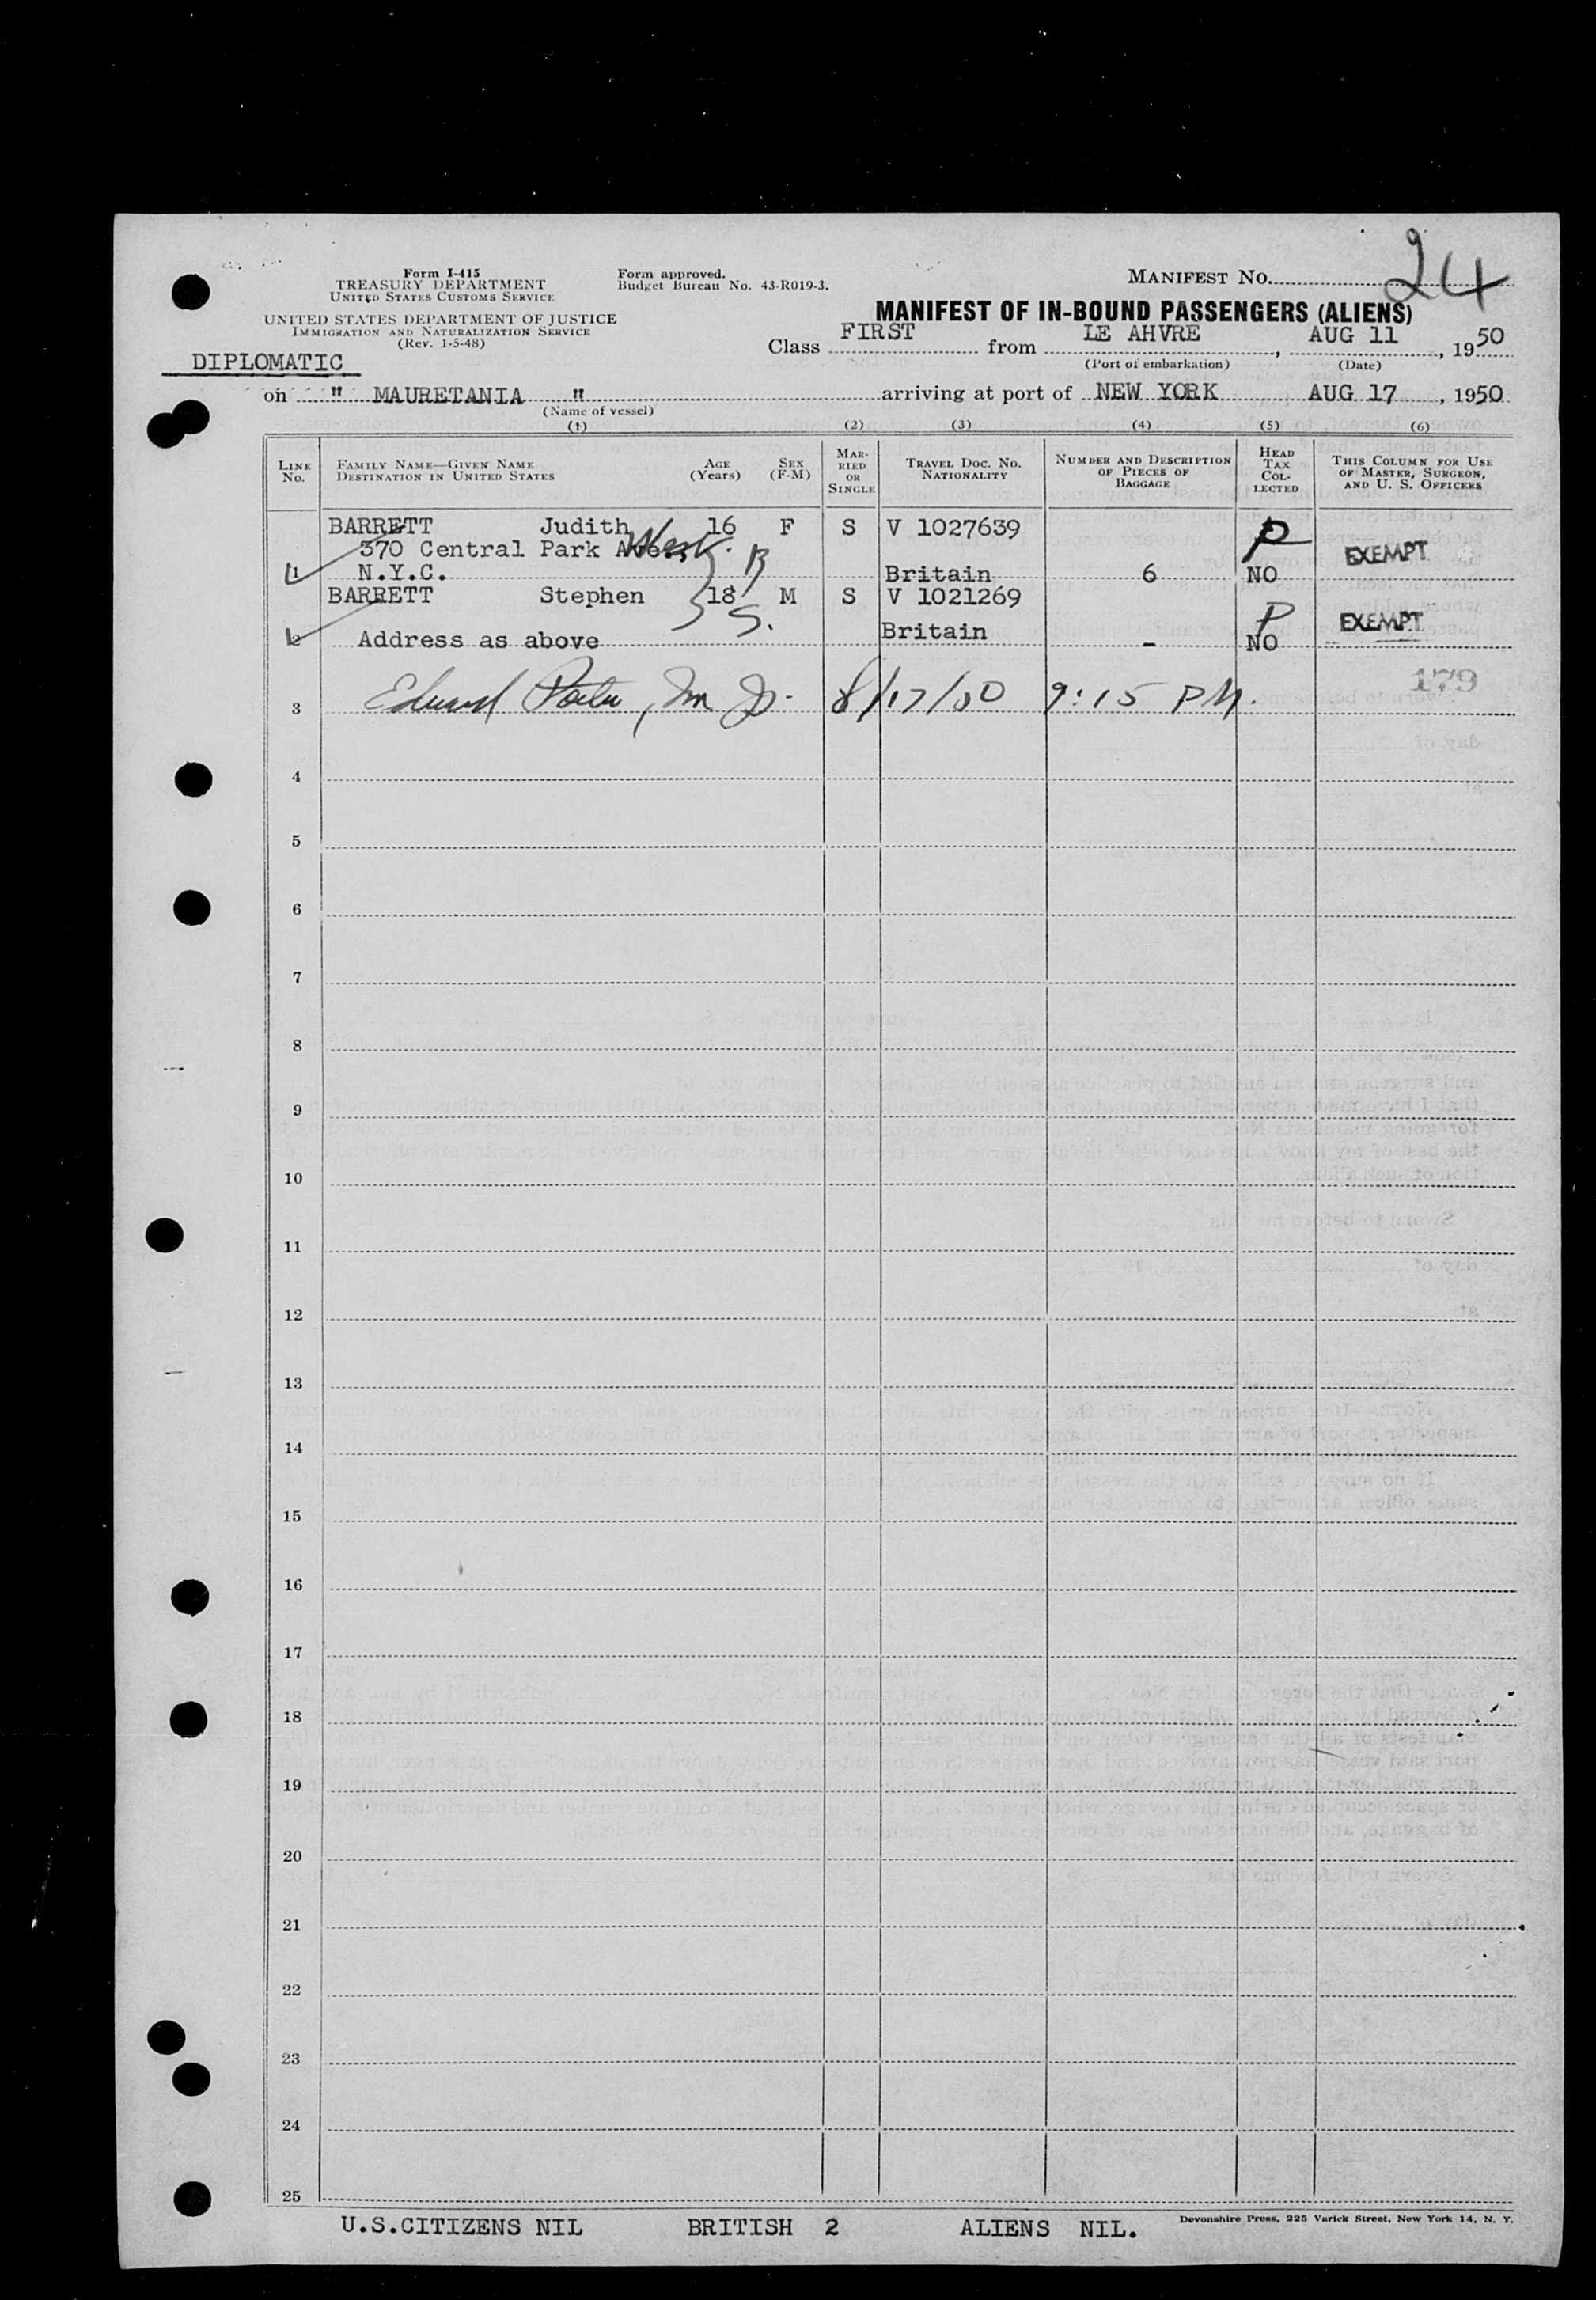 24
Form I-415
TREASURY DEPARTMENT
UNITED STATES CUSTOMS SERVICE
Form approved.
Budget Bureau No. 43-R019-3.
MANIFEST NO.
UNITED STATES DEPARTMENT OF JUSTICE
IMMIGRATION AND NATURALIZATION SERVICE
(Rev. 1-5-48)
MANIFEST OF IN-BOUND PASSENGERS (ALIENS)
DIPLOMATIC
Class FIRST from LE AHVRE, AUG 11, 1950
(Port of embarkation) (Date)
on " MAURETANIA " arriving at port of NEW YORK AUG 17, 1950
(Name of vessel)
(1) (2) (3) (4) (5) (6)
LINE NO. FAMILY NAME—GIVEN NAME DESTINATION IN UNITED STATES AGE (Years) SEX (F-M) MARRIED OR SINGLE TRAVEL DOC. NO. NATIONALITY NUMBER AND DESCRIPTION OF PIECES OF BAGGAGE HEAD TAX COLLECTED THIS COLUMN FOR USE OF MASTER, SURGEON, AND U. S. OFFICERS
BARRETT Judith 16 F S V 1027639 P EXEMPT
370 Central Park West. B
1 N.Y.C. Britain 6 NO
BARRETT Stephen 18 M S V 1021269 P EXEMPT
S.
2 Address as above Britain - NO
179
3 Edward 8/17/50 9:15 PM.
4
5
6
7
8
9
10
11
12
13
14
15
16
17
18
19
20
21
22
23
24
25
U.S.CITIZENS NIL BRITISH 2 ALIENS NIL.
Devonshire Press, 225 Varick Street, New York 14, N. Y.